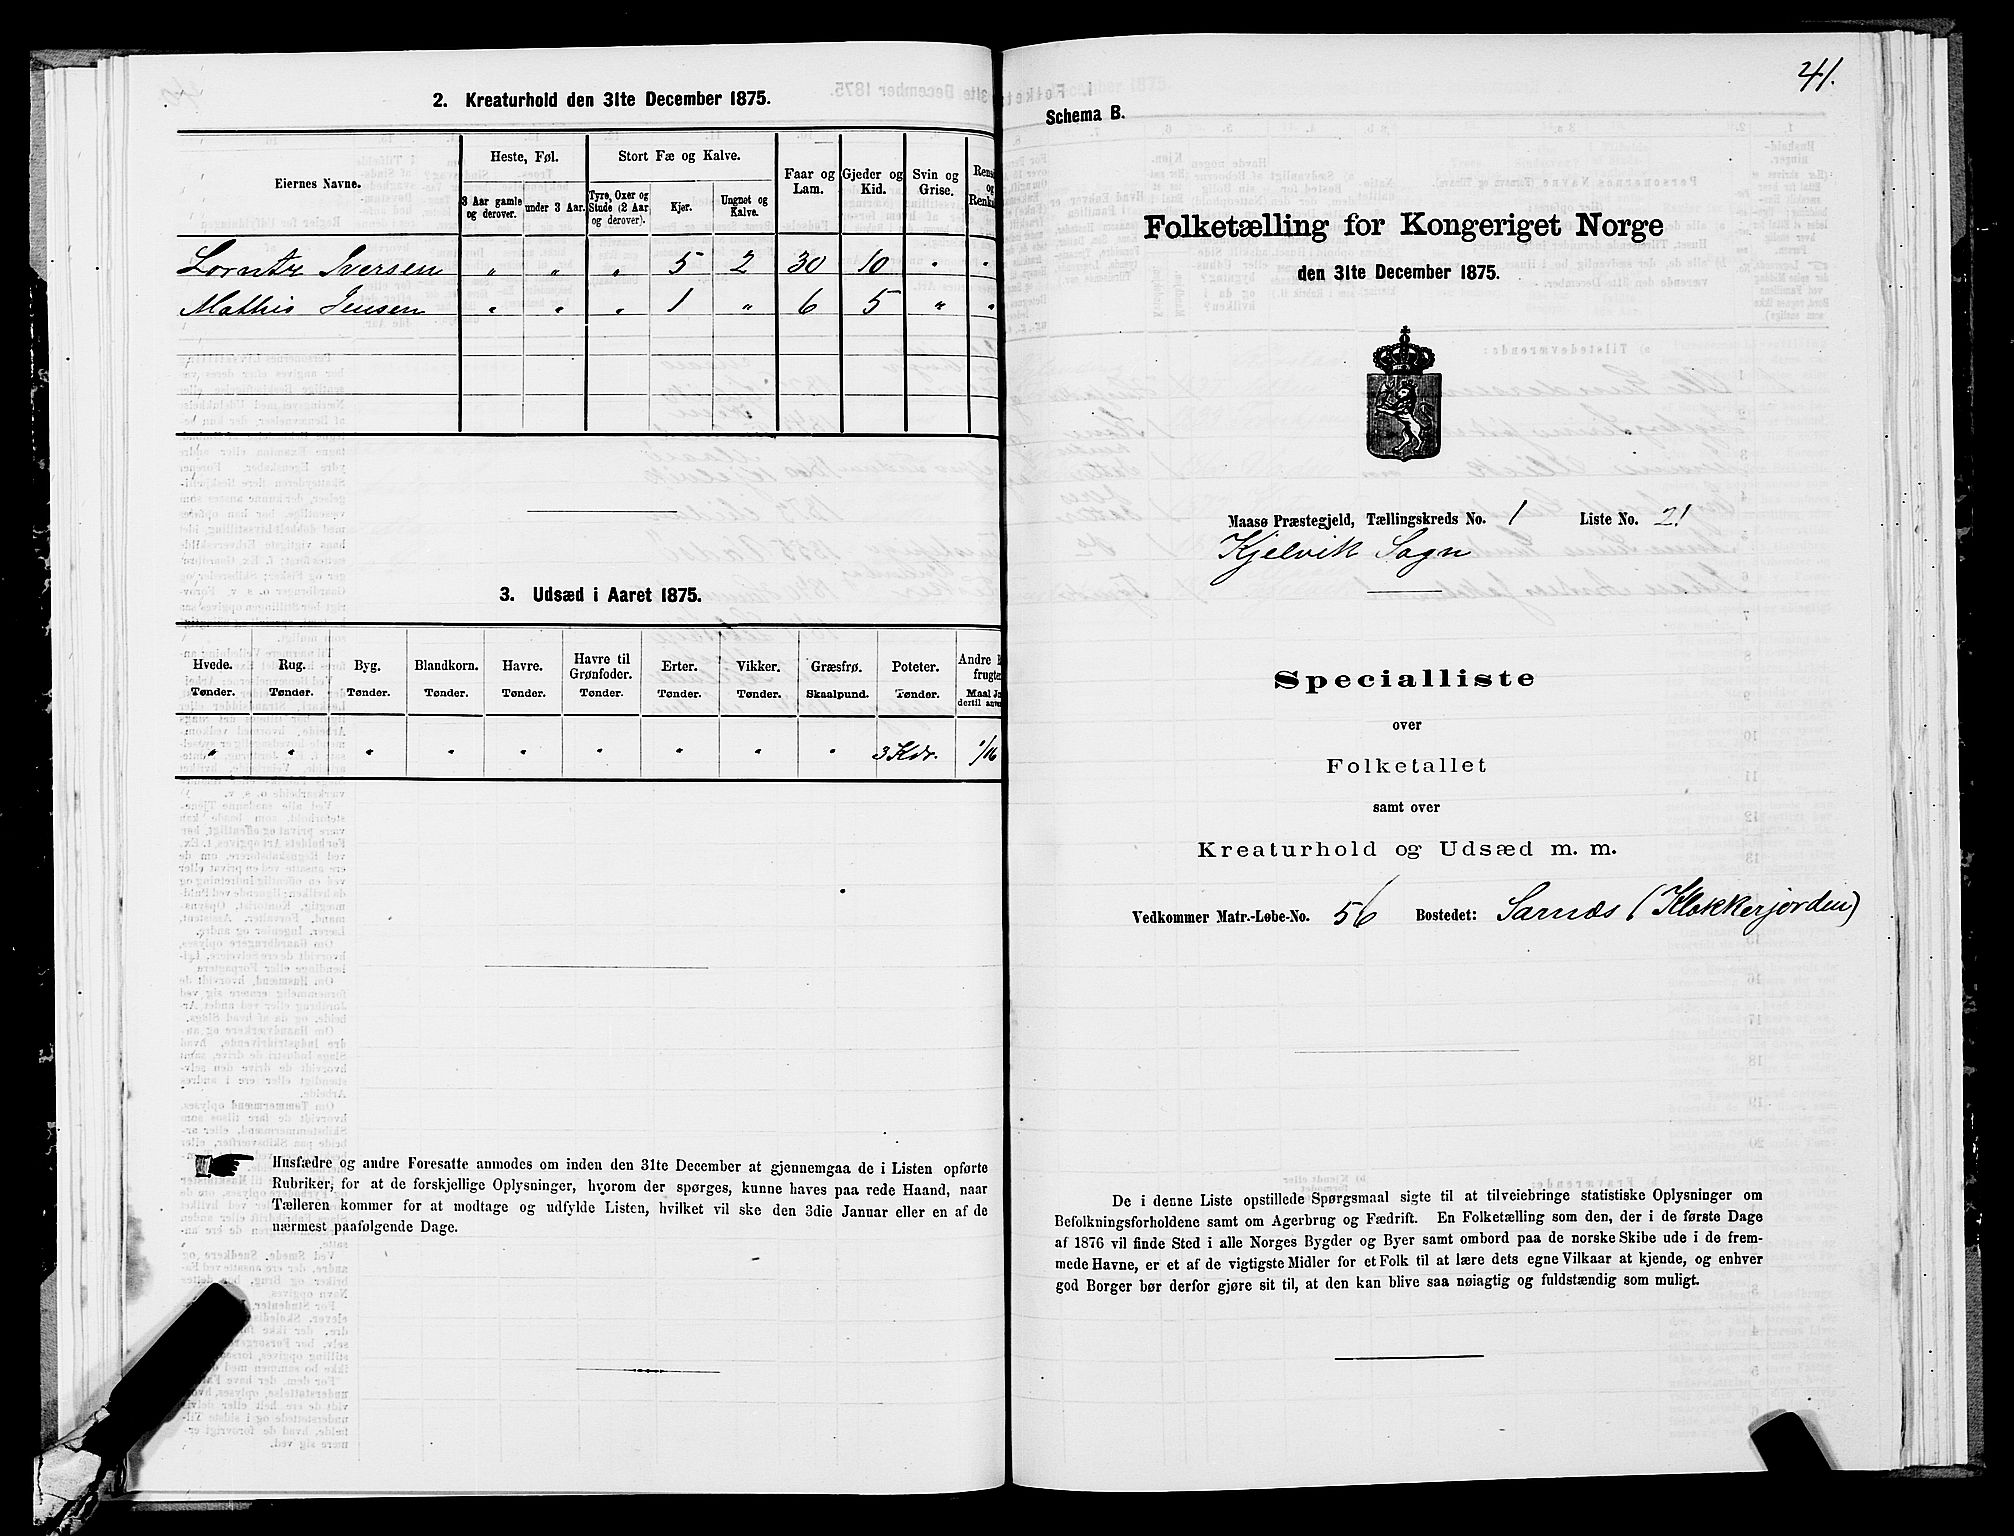 2. Kreaturhold den 31te December 1875.
Eiernes Navne.
Heste, Føl.
3 Aar gamle og derover.
under 3 Aar.
Stort Fæ og Kalve.
Tyre, Oxer og Stude (2 Aar og derover).
Kjør.
Ungnøt og Kalve.
Faar og Lam.
Gjeder og Kid.
Svin og Grise.
Rens
og
Renka
Lorntz Iversen " " " 5 2 30 10 " "
Mathis Jensen " " " 1 " 6 5 " "
3. Udsæd i Aaret 1875.
Hvede. Rug. Byg. Blandkorn. Havre. Havre til Grønfoder. Erter. Vikker. Græsfrø. Poteter. Andre
frugte
Tønder. Tønder. Tønder. Tønder. Tønder. Tønder. Tønder. Tønder. Skaalpund. Tønder. Maal
dertil
" " " " " " " " " 3 Kdr. 1/16
Husfædre og andre Foresatte anmodes om inden den 31te December at gjennemgaa de i Listen opførte
Rubriker, for at de forskjellige Oplysninger, hvorom der spørges, kunne haves paa rede Haand, naar
Tælleren kommer for at modtage og udfylde Listen, hvilket vil ske den 3die Januar eller en af de
nærmest paafølgende Dage.
41.
Schema B.
Folketælling for Kongeriget Norge
den 31te December 1875.
Maasø Præstegjeld, Tællingskreds No. 1 Liste No. 21
Kjelvik Sogn
Specialliste
over
Folketallet
samt over
Kreaturhold og Udsæd m. m.
Vedkommer Matr.-Løbe-No. 56 Bostedet: Sarnæs (Klokkerjorden)
De i denne Liste opstillede Spørgsmaal sigte til at tilveiebringe statistiske Oplysninger om
Befolkningsforholdene samt om Agerbrug og Fædrift. En Folketælling som den, der i de første Dage
af 1876 vil finde Sted i alle Norges Bygder og Byer samt ombord paa de norske Skibe ude i de frem-
mede Havne, er et af de vigtigste Midler for et Folk til at lære dets egne Vilkaar at kjende, og enhver
god Borger bør derfor gjøre sit til, at den kan blive saa nøiagtig og fuldstændig som muligt.